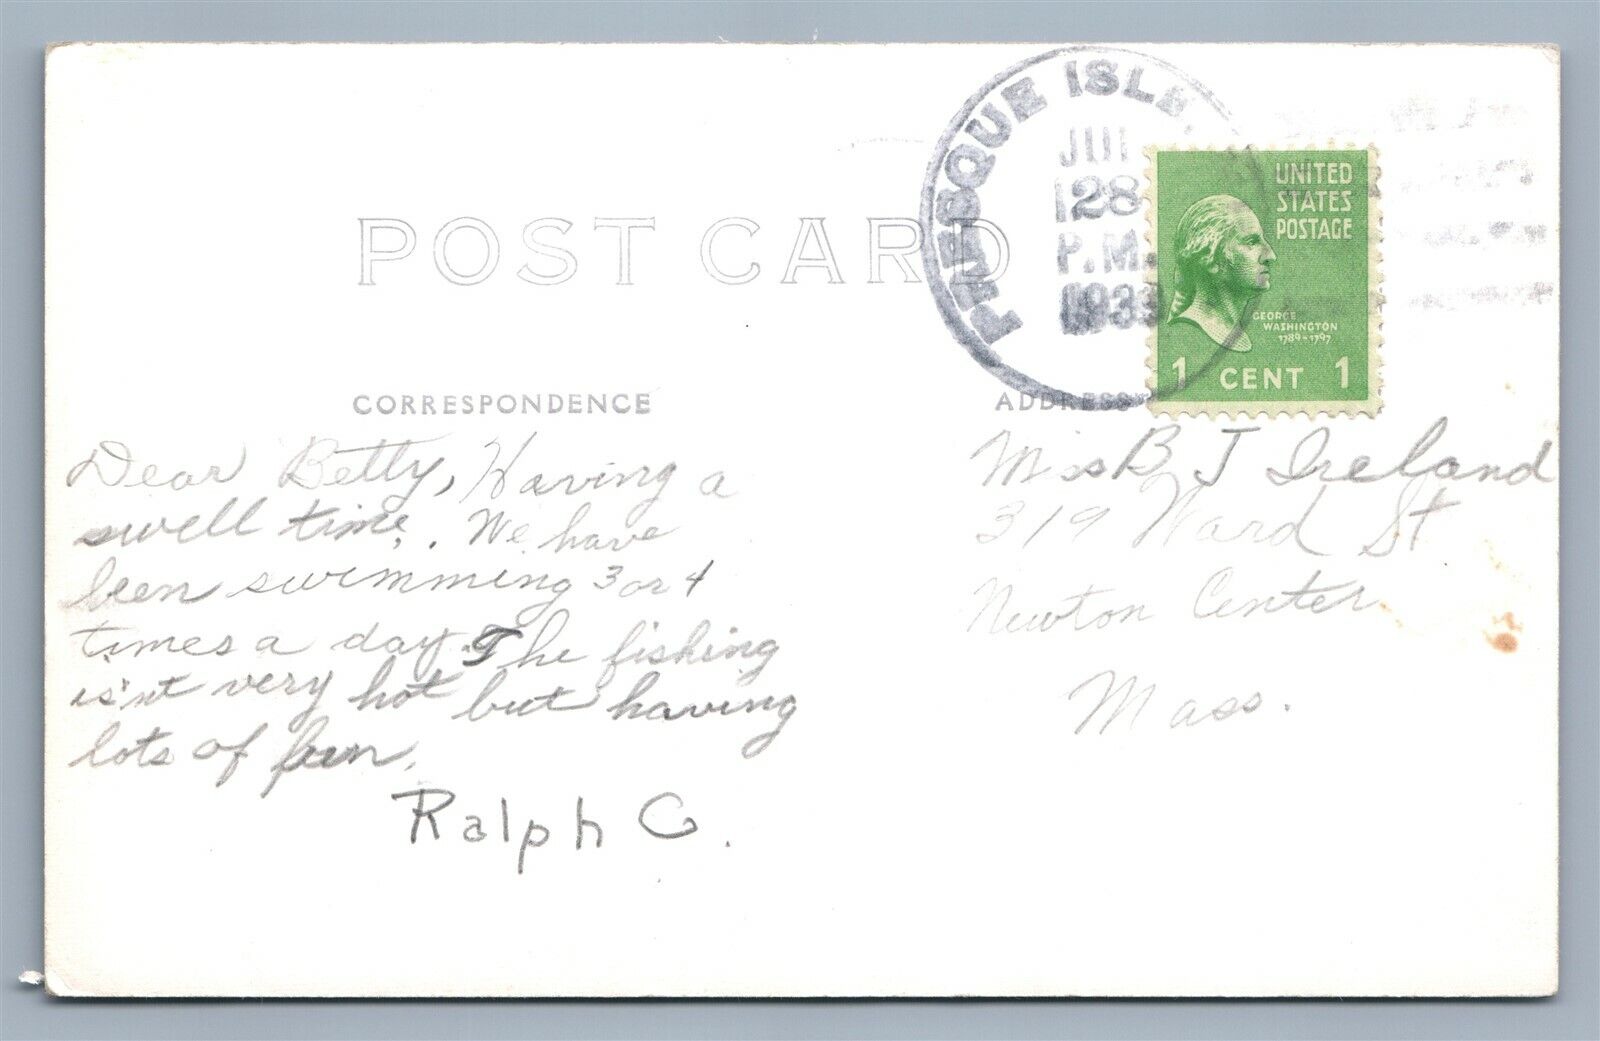 PRESQUE ISLE,
JUL
28
P.M.
193
UNITED
STATES
POSTAGE
GEORGE
WASHINGTON
1789-1797
1 CENT 1
POST CARD
CORRESPONDENCE
ADDRESS
Dear Betty, Having a
swell time. We have
been swimming 3 or 4
times a day. The fishing
is'nt very hot but having
lots of fun.
Ralph C.
Miss B J Ireland
319 Ward St
Newton Center
Mass.